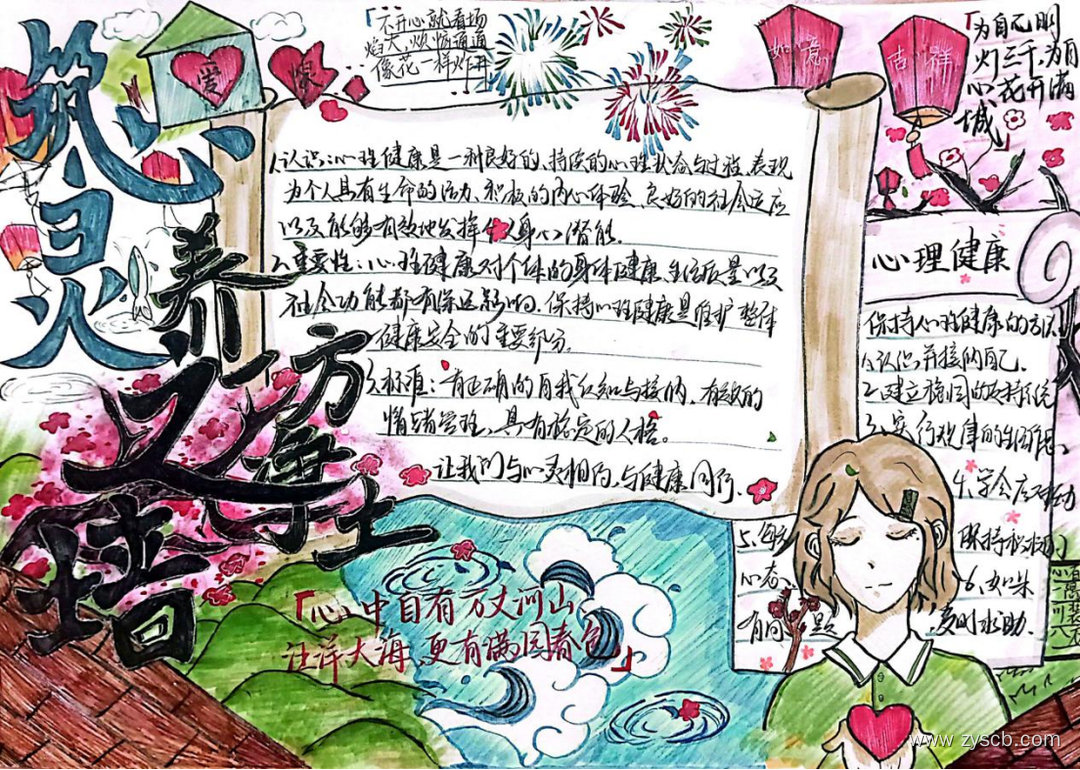 筑心灵
养一方净土
之墙
爱
「不开心就看场
焰火,烦恼通通
像花一样炸开
如意
吉祥
「为自己明
灯三千,为自
心花开满
城」
1.认识:心理健康是一种良好的、持续的心理状态与过程,表现
为个人具有生命的活力、积极的内心体验、良好的社会适应
以及能够有效地发挥个人身心潜能。
2.重要性:心理健康对个体的身体健康、生活质量以及
社会功能都有深远影响。保持心理健康是维护整体
健康安全的重要部分。
3.标准:有正确的自我认知与接纳、有效的
情绪管理、具有稳定的人格。
让我们与心灵相约,与健康同行。
心理健康
保持心理健康的方法
1.认识并接纳自己。
2.建立稳固的支持系统
3.实行规律的生活作息
4.学会应对
5.
保持积极
心态
6.如果
有问题
及时求助.
「心中自有万丈河山
汪洋大海,更有满园春色」
www.zyscb.com